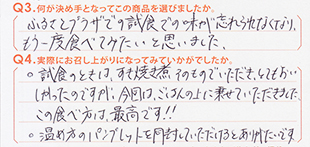 Q3.何が決め手となってこの商品を選びましたか。
ふるさとプラザでの試食での味が忘れられなくなり、
もう一度食べてみたいと思いました。
Q4.実際にお召し上がりになってみていかがでしたか。
○試食のときは、すき焼き煮そのものでいただき、とてもおい
しかったのですが、今回は、ごはんの上に乗せていただきました。
この食べ方は、最高です!!
○温め方のパンフレットを同封していただけるとありがたいです